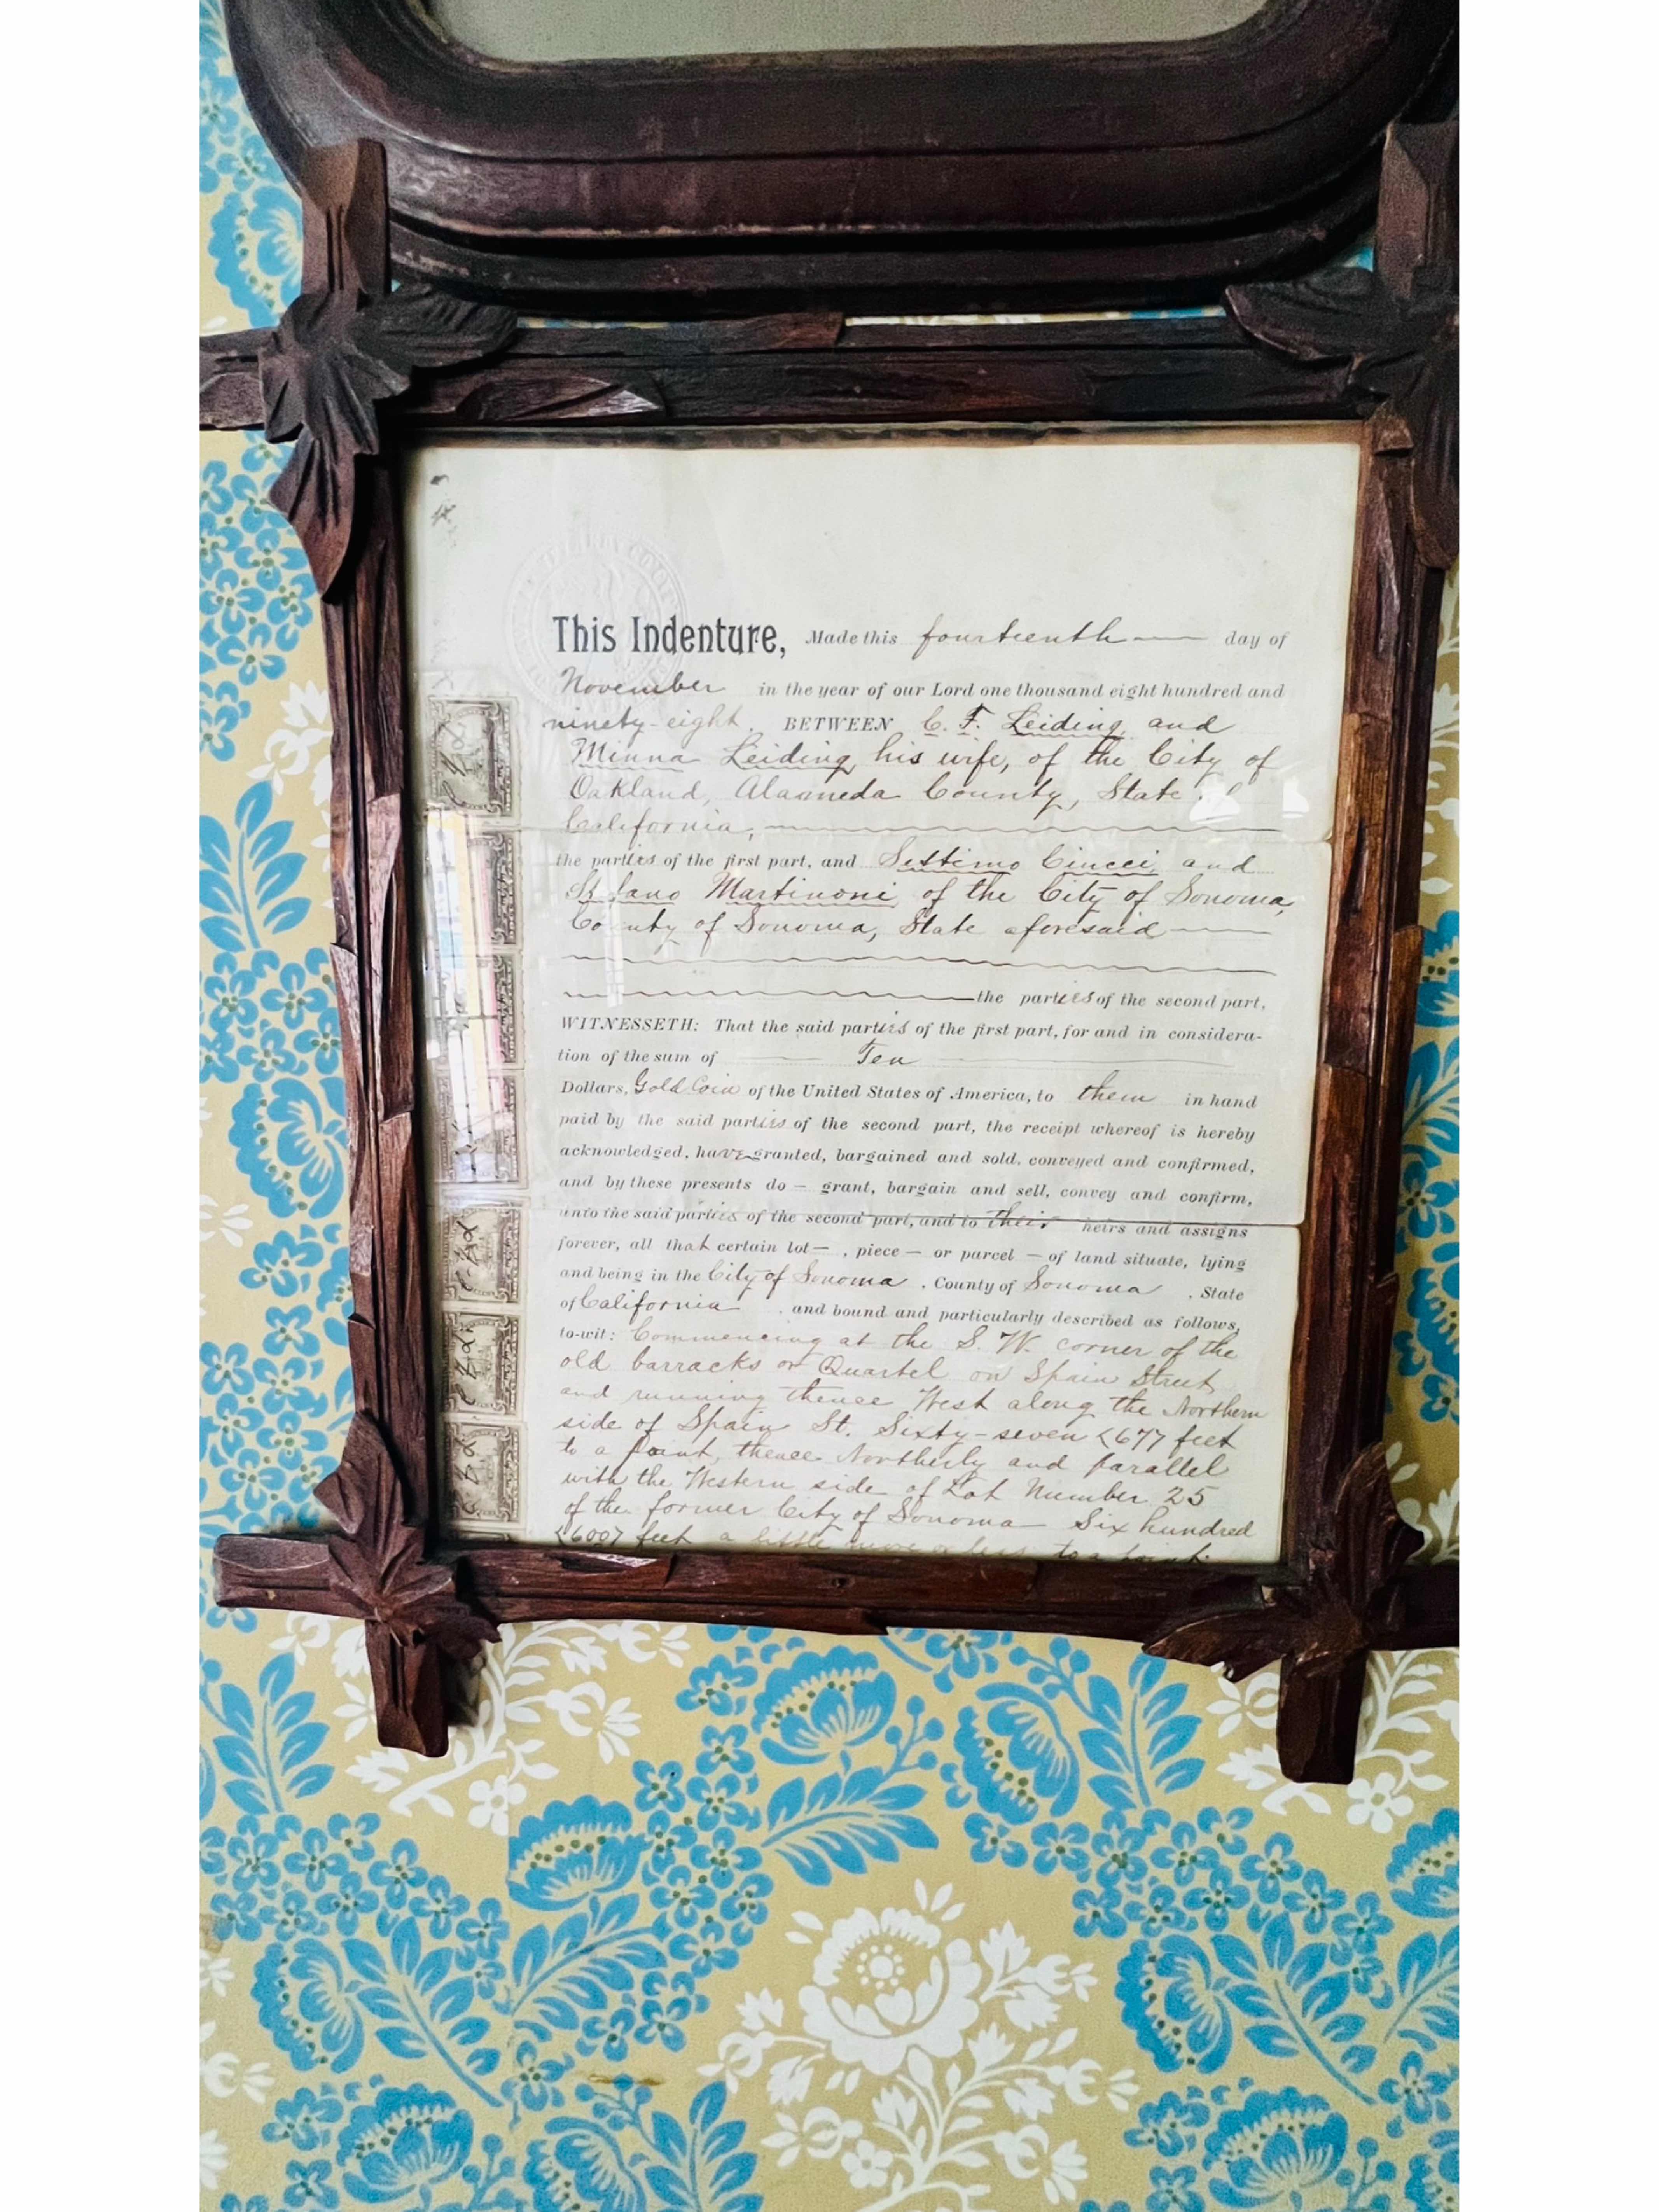 This Indenture, Made this fourteenth day of
November in the year of our Lord one thousand eight hundred and
ninety-eight. BETWEEN C. F. Leiding and
Minna Leiding his wife, of the City of
Oakland, Alameda County, State
California,
the parties of the first part, and Settimo Ciucci and
Martinoni of the City of Sonoma,
County of Sonoma, State aforesaid
the parties of the second part,
WITNESSETH: That the said parties of the first part, for and in considera-
tion of the sum of Ten
Dollars, Gold Coin of the United States of America, to them in hand
paid by the said parties of the second part, the receipt whereof is hereby
acknowledged, have granted, bargained and sold, conveyed and confirmed,
and by these presents do — grant, bargain and sell, convey and confirm,
unto the said parties of the second part, and to their heirs and assigns
forever, all that certain lot — , piece — or parcel — of land situate, lying
and being in the City of Sonoma , County of Sonoma , State
of California , and bound and particularly described as follows,
to-wit: Commencing at the S. W. corner of the
old barracks or Quartel on Spain Street
and running thence West along the Northern
side of Spain St. Sixty-seven <67> feet
to a point, thence Northerly and parallel
with the Western side of Lot Number 25
of the former City of Sonoma Six hundred
<600> feet a little more or less to a point